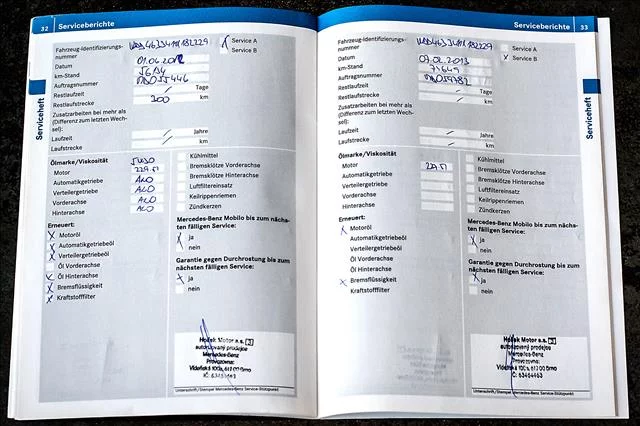 32 Serviceberichte
Fahrzeug-Identifizierungs-
nummer
Service A
Service B
Datum 01.04.2012
km-Stand
Auftragsnummer
Restlaufzeit / Tage
Restlaufstrecke 200 km
Zusatzarbeiten bei mehr als
(Differenz zum letzten Wech-
sel):
Laufzeit / Jahre
Laufstrecke / km
Ölmarke/Viskosität
Motor 229.51
Automatikgetriebe
Verteilergetriebe
Vorderachse
Hinterachse
Erneuert:
X Motoröl
X Automatikgetriebeöl
X Verteilergetriebeöl
Öl Vorderachse
X Öl Hinterachse
X Bremsflüssigkeit
X Kraftstofffilter
Kühlmittel
Bremsklötze Vorderachse
Bremsklötze Hinterachse
Luftfiltereinsatz
Keilrippenriemen
Zündkerzen
Mercedes-Benz Mobilo bis zum nächs-
ten fälligen Service:
X ja
nein
Garantie gegen Durchrostung bis zum
nächsten fälligen Service:
X ja
nein
Hošek Motor a.s. 3
autorizovaný prodejce
Mercedes-Benz
Provozovna:
Vídeňská 100a, 617 00 Brno
Unterschrift/Stempel Mercedes-Benz Service-Stützpunkt
Serviceheft
Serviceberichte 33
Fahrzeug-Identifizierungs-
nummer
Service A
X Service B
Datum 07.02.2013
km-Stand
Auftragsnummer
Restlaufzeit / Tage
Restlaufstrecke / km
Zusatzarbeiten bei mehr als
(Differenz zum letzten Wech-
sel):
Laufzeit / Jahre
Laufstrecke / km
Ölmarke/Viskosität
Motor 229.51
Automatikgetriebe
Verteilergetriebe
Vorderachse
Hinterachse
Erneuert:
X Motoröl
Automatikgetriebeöl
Verteilergetriebeöl
Öl Vorderachse
Öl Hinterachse
X Bremsflüssigkeit
Kraftstofffilter
Kühlmittel
Bremsklötze Vorderachse
Bremsklötze Hinterachse
Luftfiltereinsatz
Keilrippenriemen
Zündkerzen
Mercedes-Benz Mobilo bis zum nächs-
ten fälligen Service:
X ja
nein
Garantie gegen Durchrostung bis zum
nächsten fälligen Service:
X ja
nein
Hošek Motor a.s. 3
autorizovaný prodejce
Mercedes-Benz
Provozovna:
Vídeňská 100a, 617 00 Brno
IČ: 63484463
Unterschrift/Stempel Mercedes-Benz Service-Stützpunkt
Serviceheft